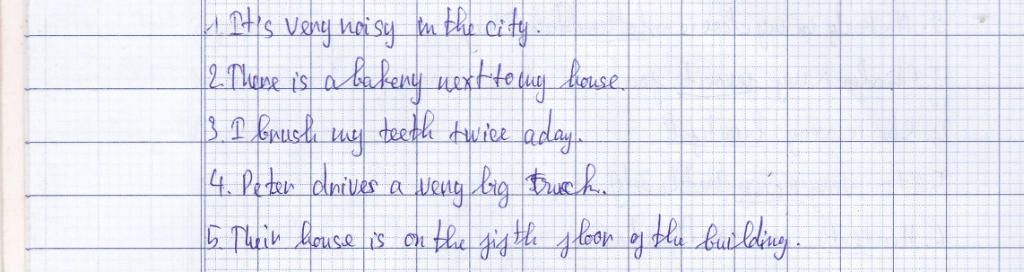 1. It's very noisy in the city.
2. There is a bakery next to my house.
3. I brush my teeth twice a day.
4. Peter drives a very big truck.
5. Their house is on the fifth floor of the building.